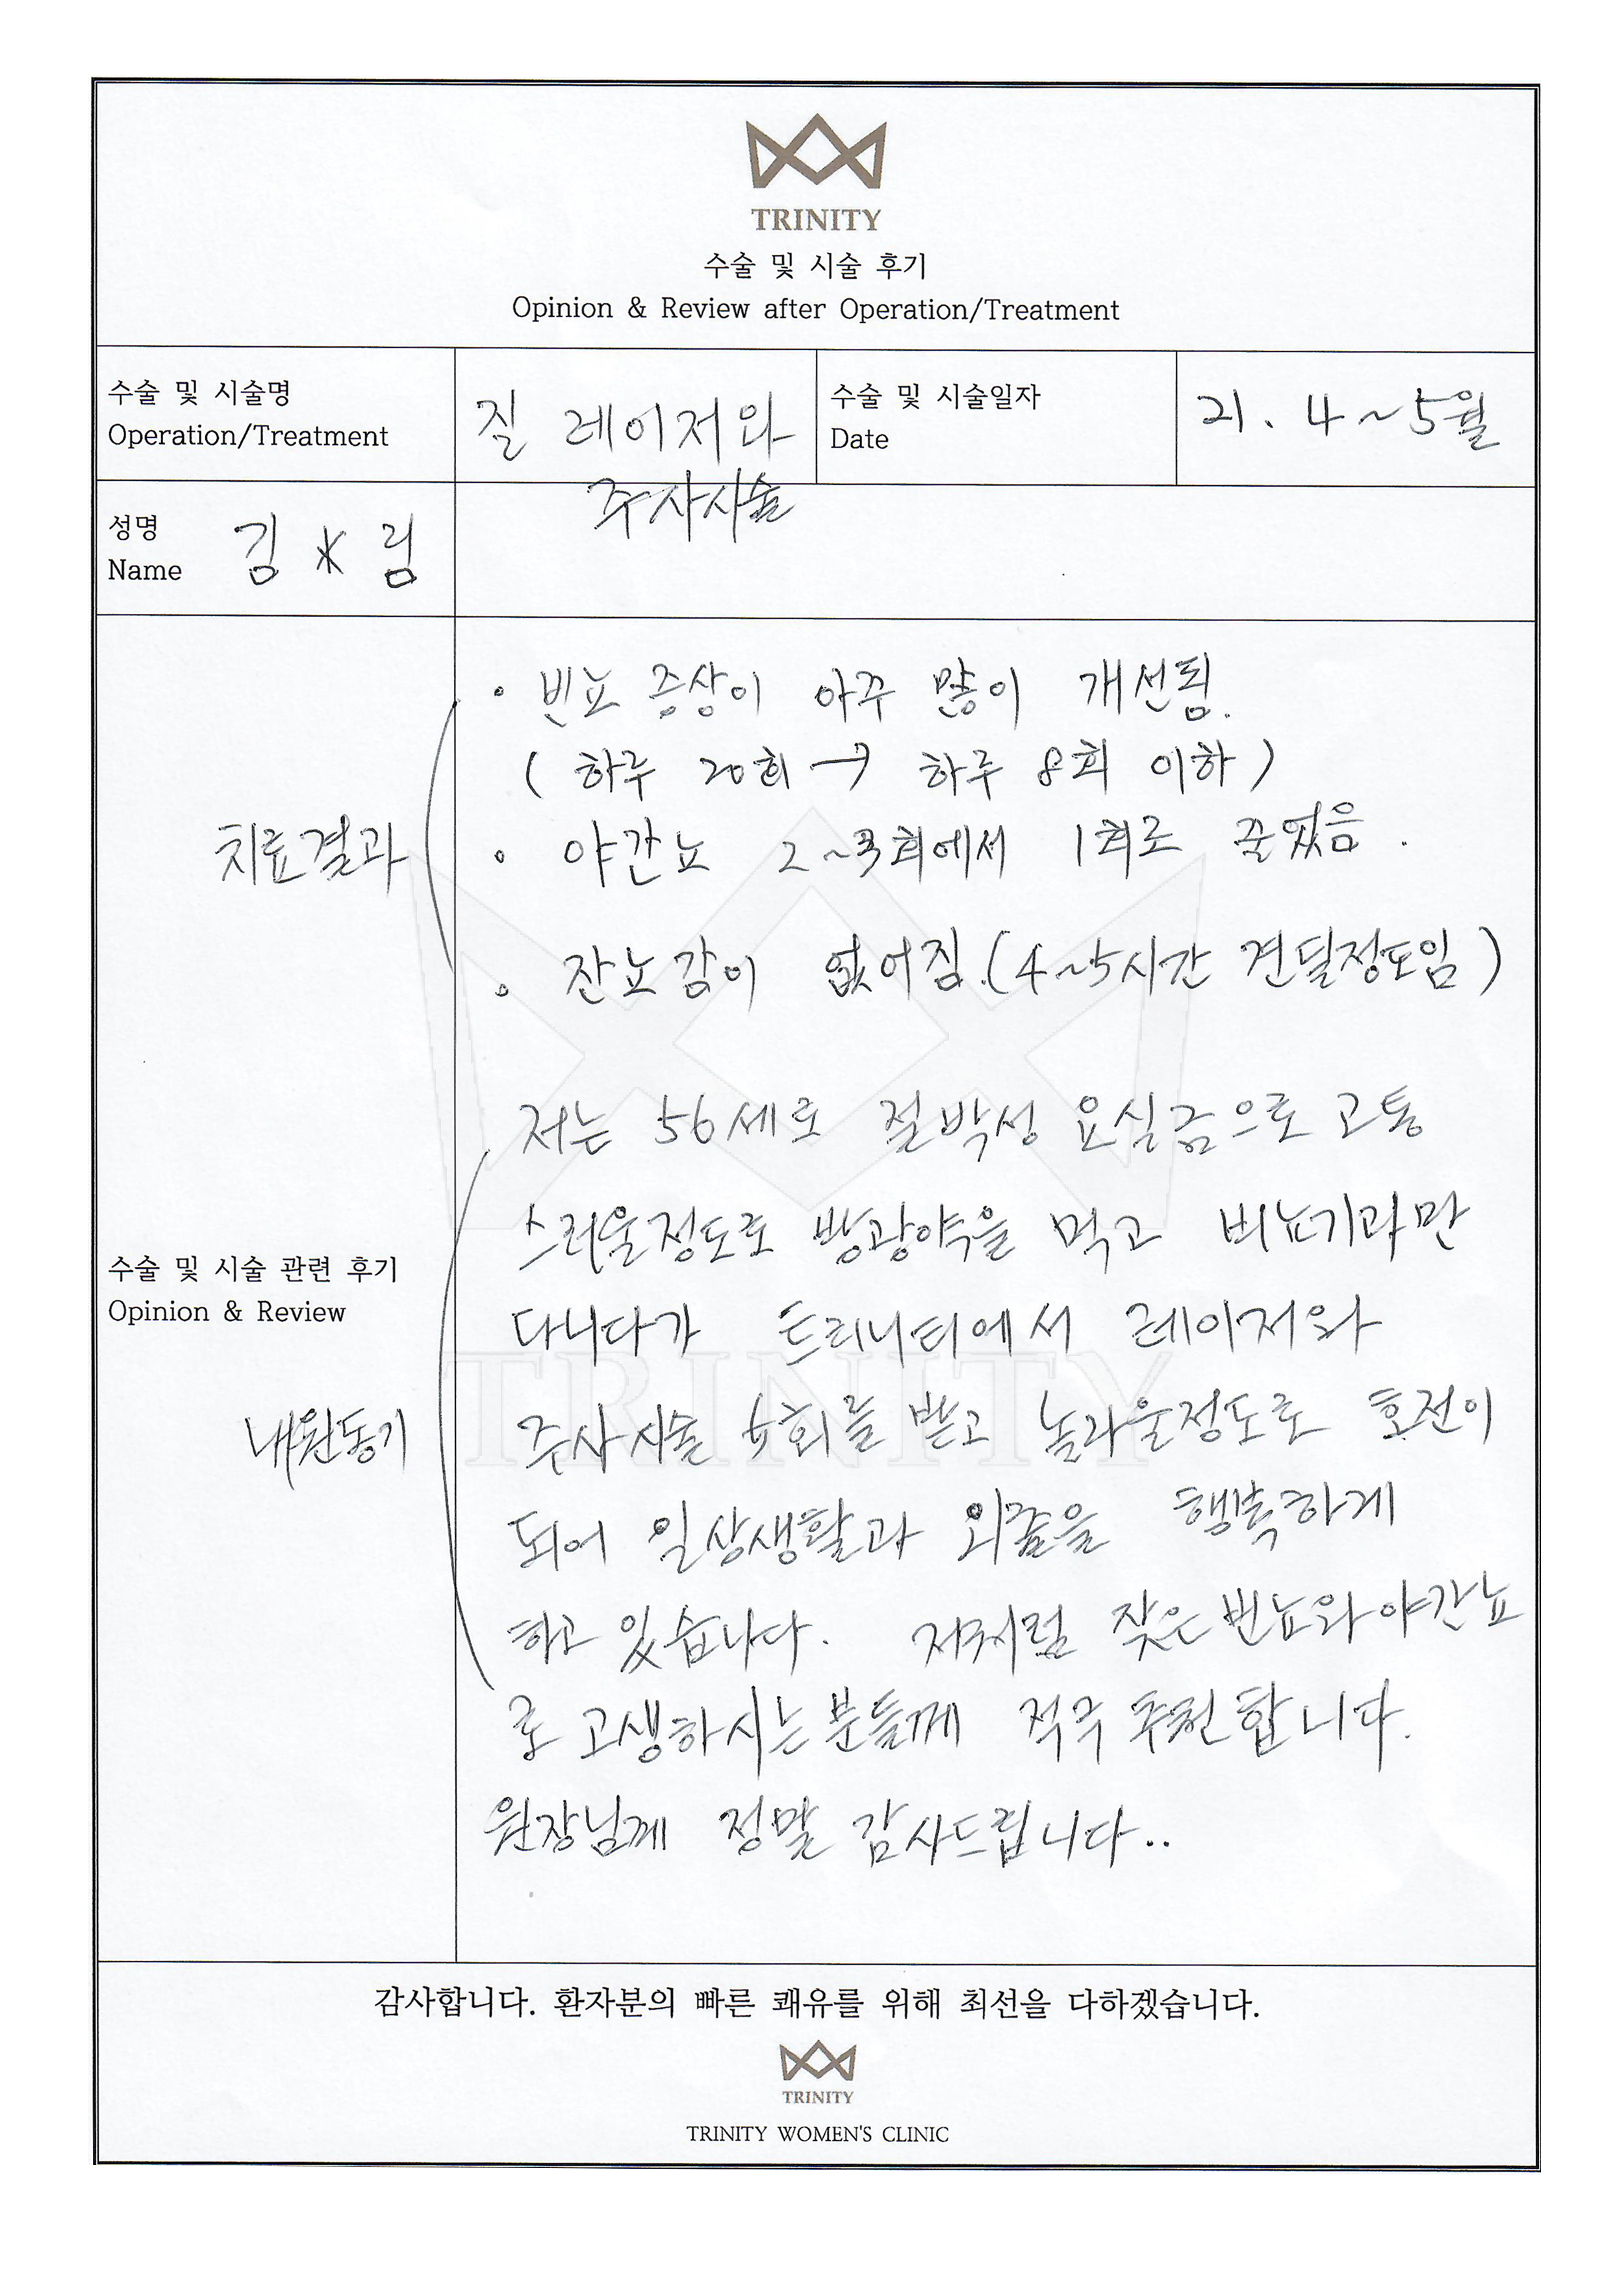 TRINITY
수술 및 시술 후기
Opinion & Review after Operation/Treatment
수술 및 시술명
Operation/Treatment
질 레이저와
주사시술
수술 및 시술일자
Date
21. 4~5월
성명
Name
김 * 림
치료결과
• 빈뇨 증상이 아주 많이 개선됨.
( 하루 20회 → 하루 8회 이하 )
• 야간뇨 2~3회에서 1회로 줄었음.
• 잔뇨감이 없어짐.(4~5시간 견딜정도임)
수술 및 시술 관련 후기
Opinion & Review
내원동기
저는 56세로 절박성 요실금으로 고통
스러울정도로 방광약을 먹고 비뇨기과만
다니다가 트리니티에서 레이저와
주사시술 5회를 받고 놀라울정도로 호전이
되어 일상생활과 외출을 행복하게
하고 있습니다. 저처럼 잦은 빈뇨와 야간뇨
로 고생하시는 분들께 적극 추천합니다.
원장님께 정말 감사드립니다..
TRINITY
감사합니다. 환자분의 빠른 쾌유를 위해 최선을 다하겠습니다.
TRINITY
TRINITY WOMEN'S CLINIC